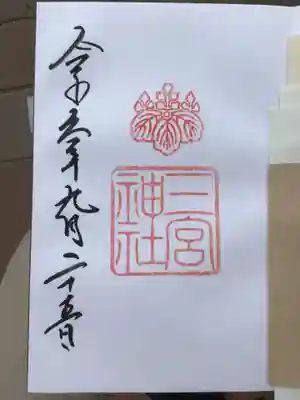 令和五年九月二十五日
二宮
神社